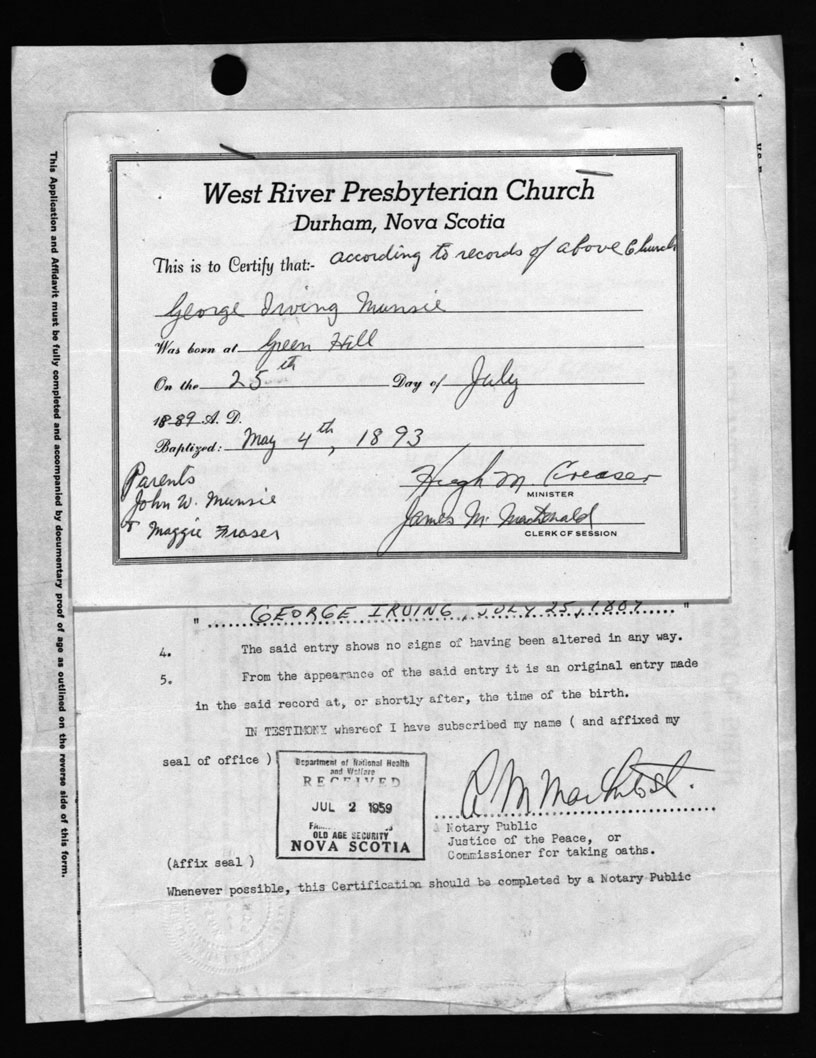 West River Presbyterian Church
Durham, Nova Scotia
This is to Certify that:- according to records of above Church
George Irving Munsie
Was born at Green Hill
On the 25th Day of July
1889 A. D.
Baptized: May 4th, 1893
Parents
John W. Munsie
& Maggie Fraser
Hugh M Creaser
MINISTER
James M. MacDonald
CLERK OF SESSION
This Application and Affidavit must be fully completed and accompanied by documentary proof of age as outlined on the reverse side of this form.
" GEORGE IRVING, JULY 25, 1889 "
4. The said entry shows no signs of having been altered in any way.
5. From the appearance of the said entry it is an original entry made
in the said record at, or shortly after, the time of the birth.
IN TESTIMONY whereof I have subscribed my name ( and affixed my
seal of office )
Department of National Health
and Welfare
RECEIVED
JUL 2 1959
OLD AGE SECURITY
NOVA SCOTIA
A Notary Public
Justice of the Peace, or
Commissioner for taking oaths.
(Affix seal )
Whenever possible, this Certification should be completed by a Notary Public